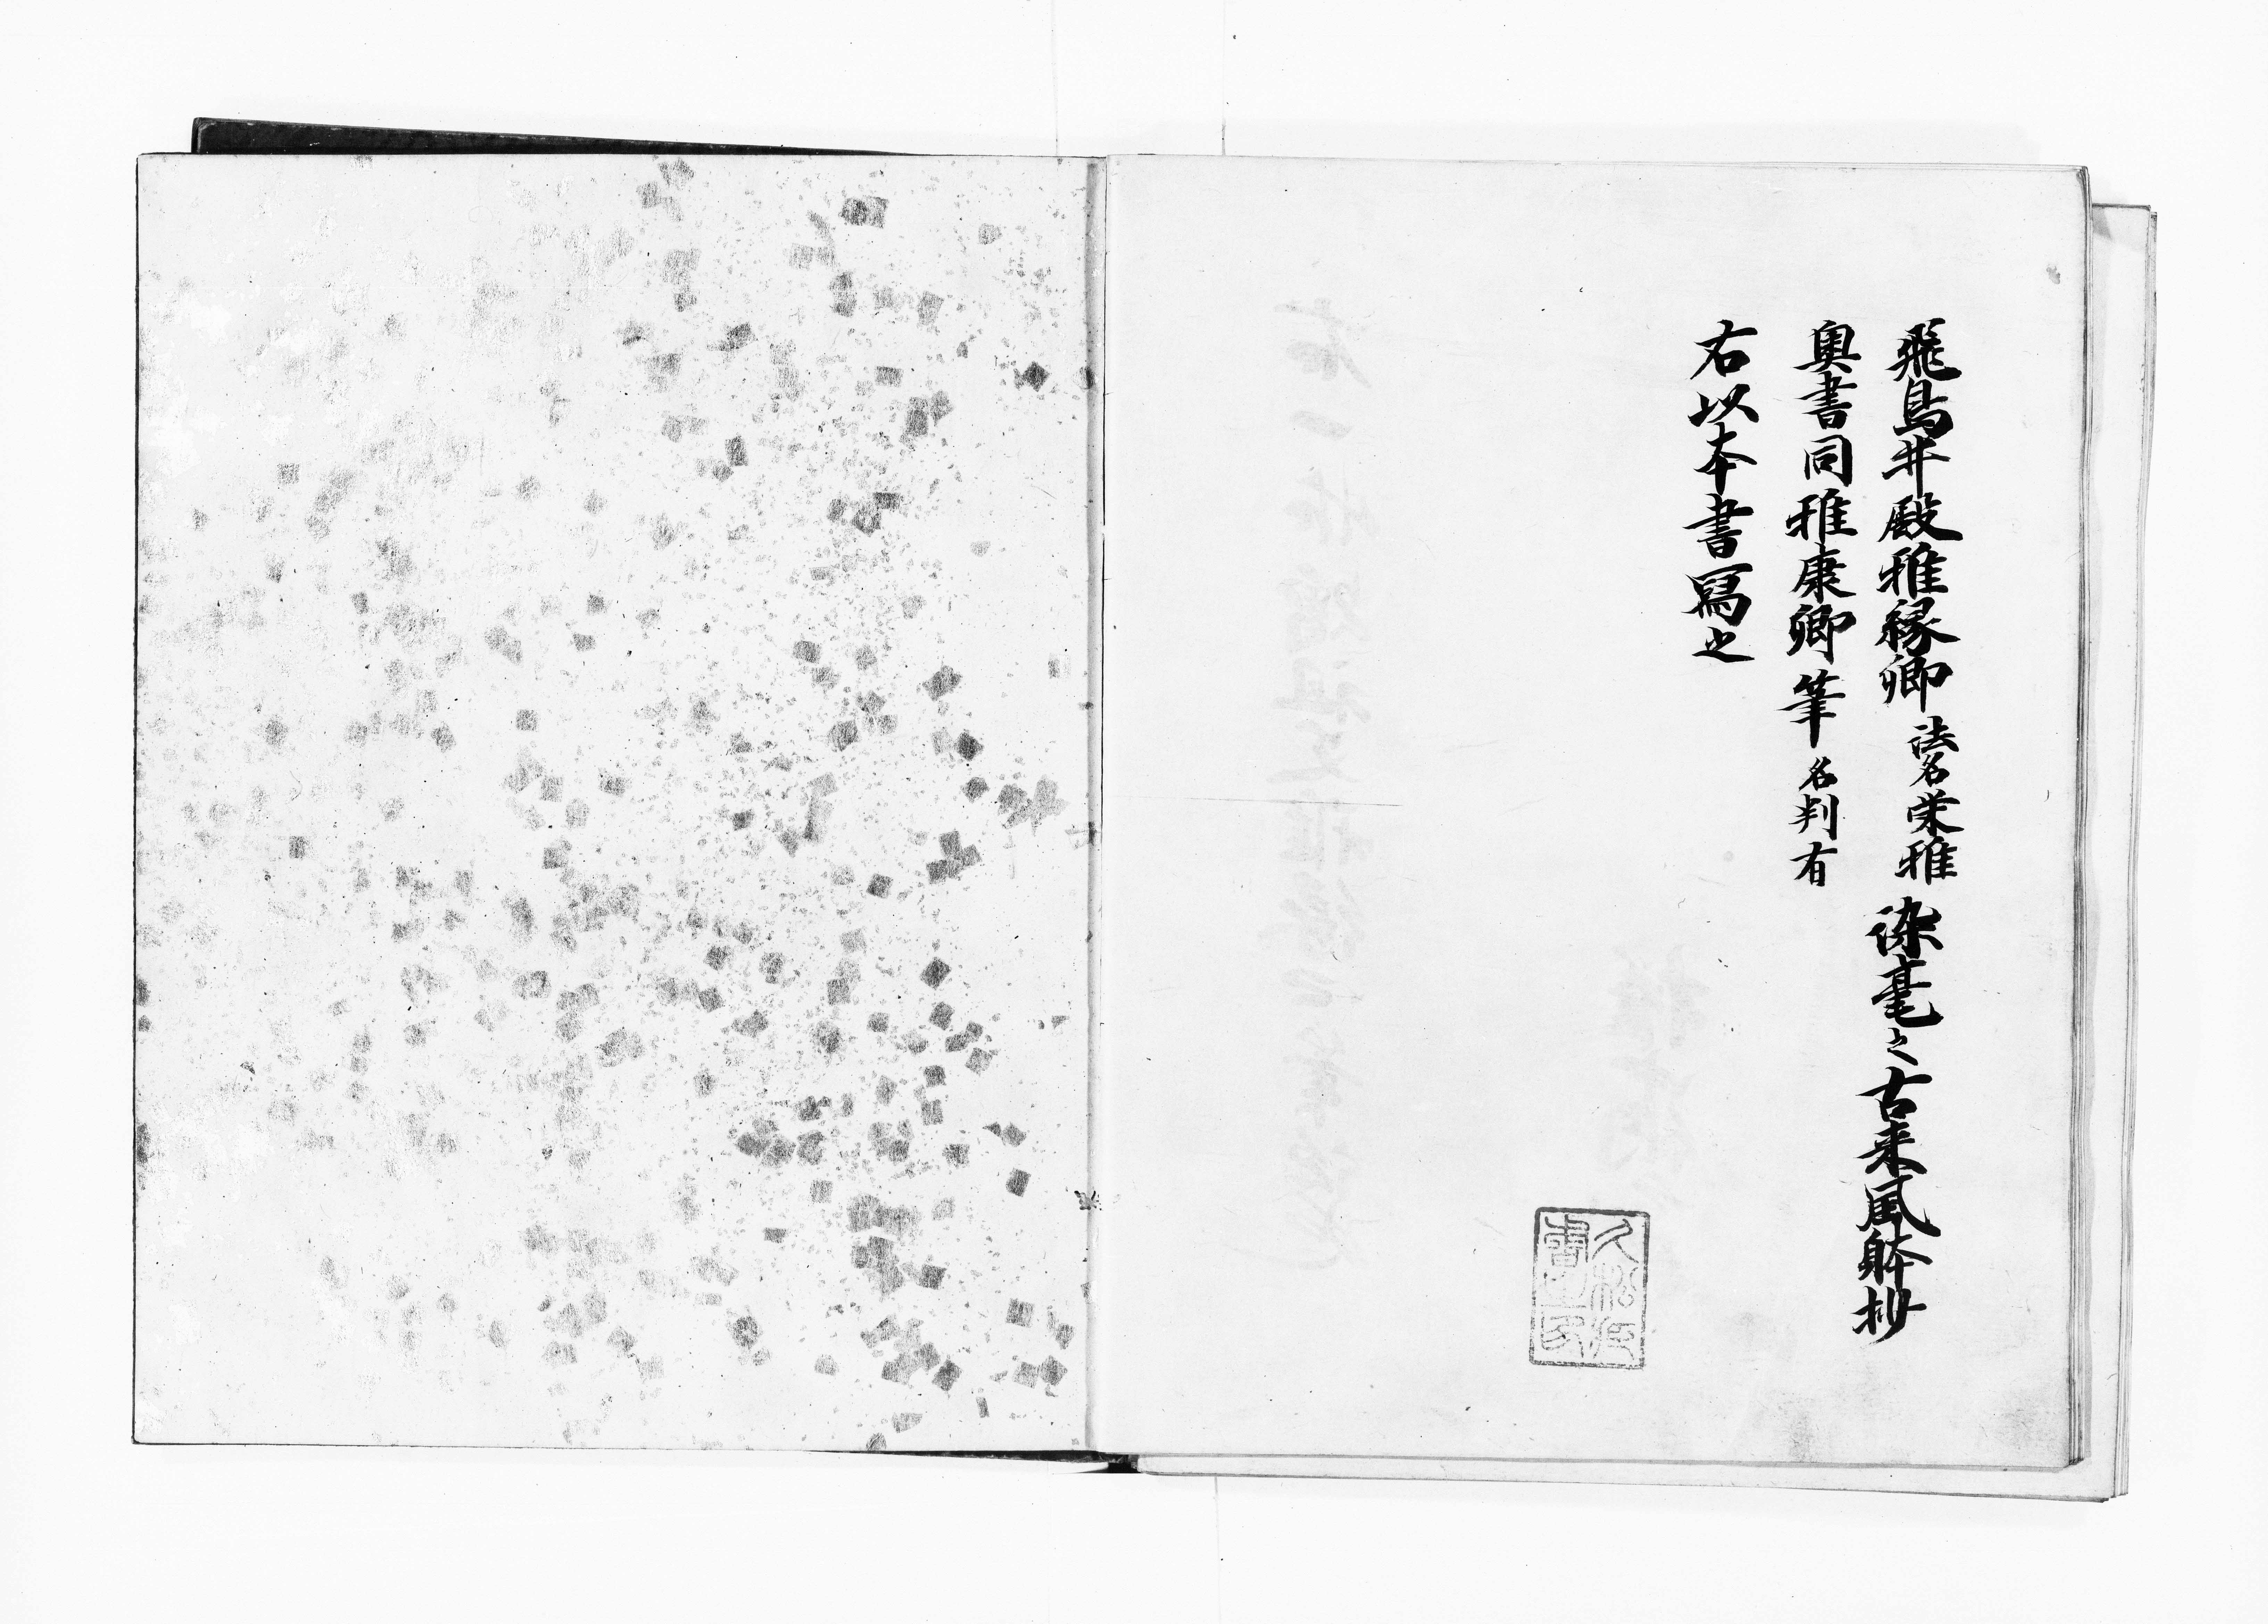 飛鳥井殿雅縁卿法名栄雅染毫之古来風躰抄
奥書同雅康卿筆名判有
右以本書冩之